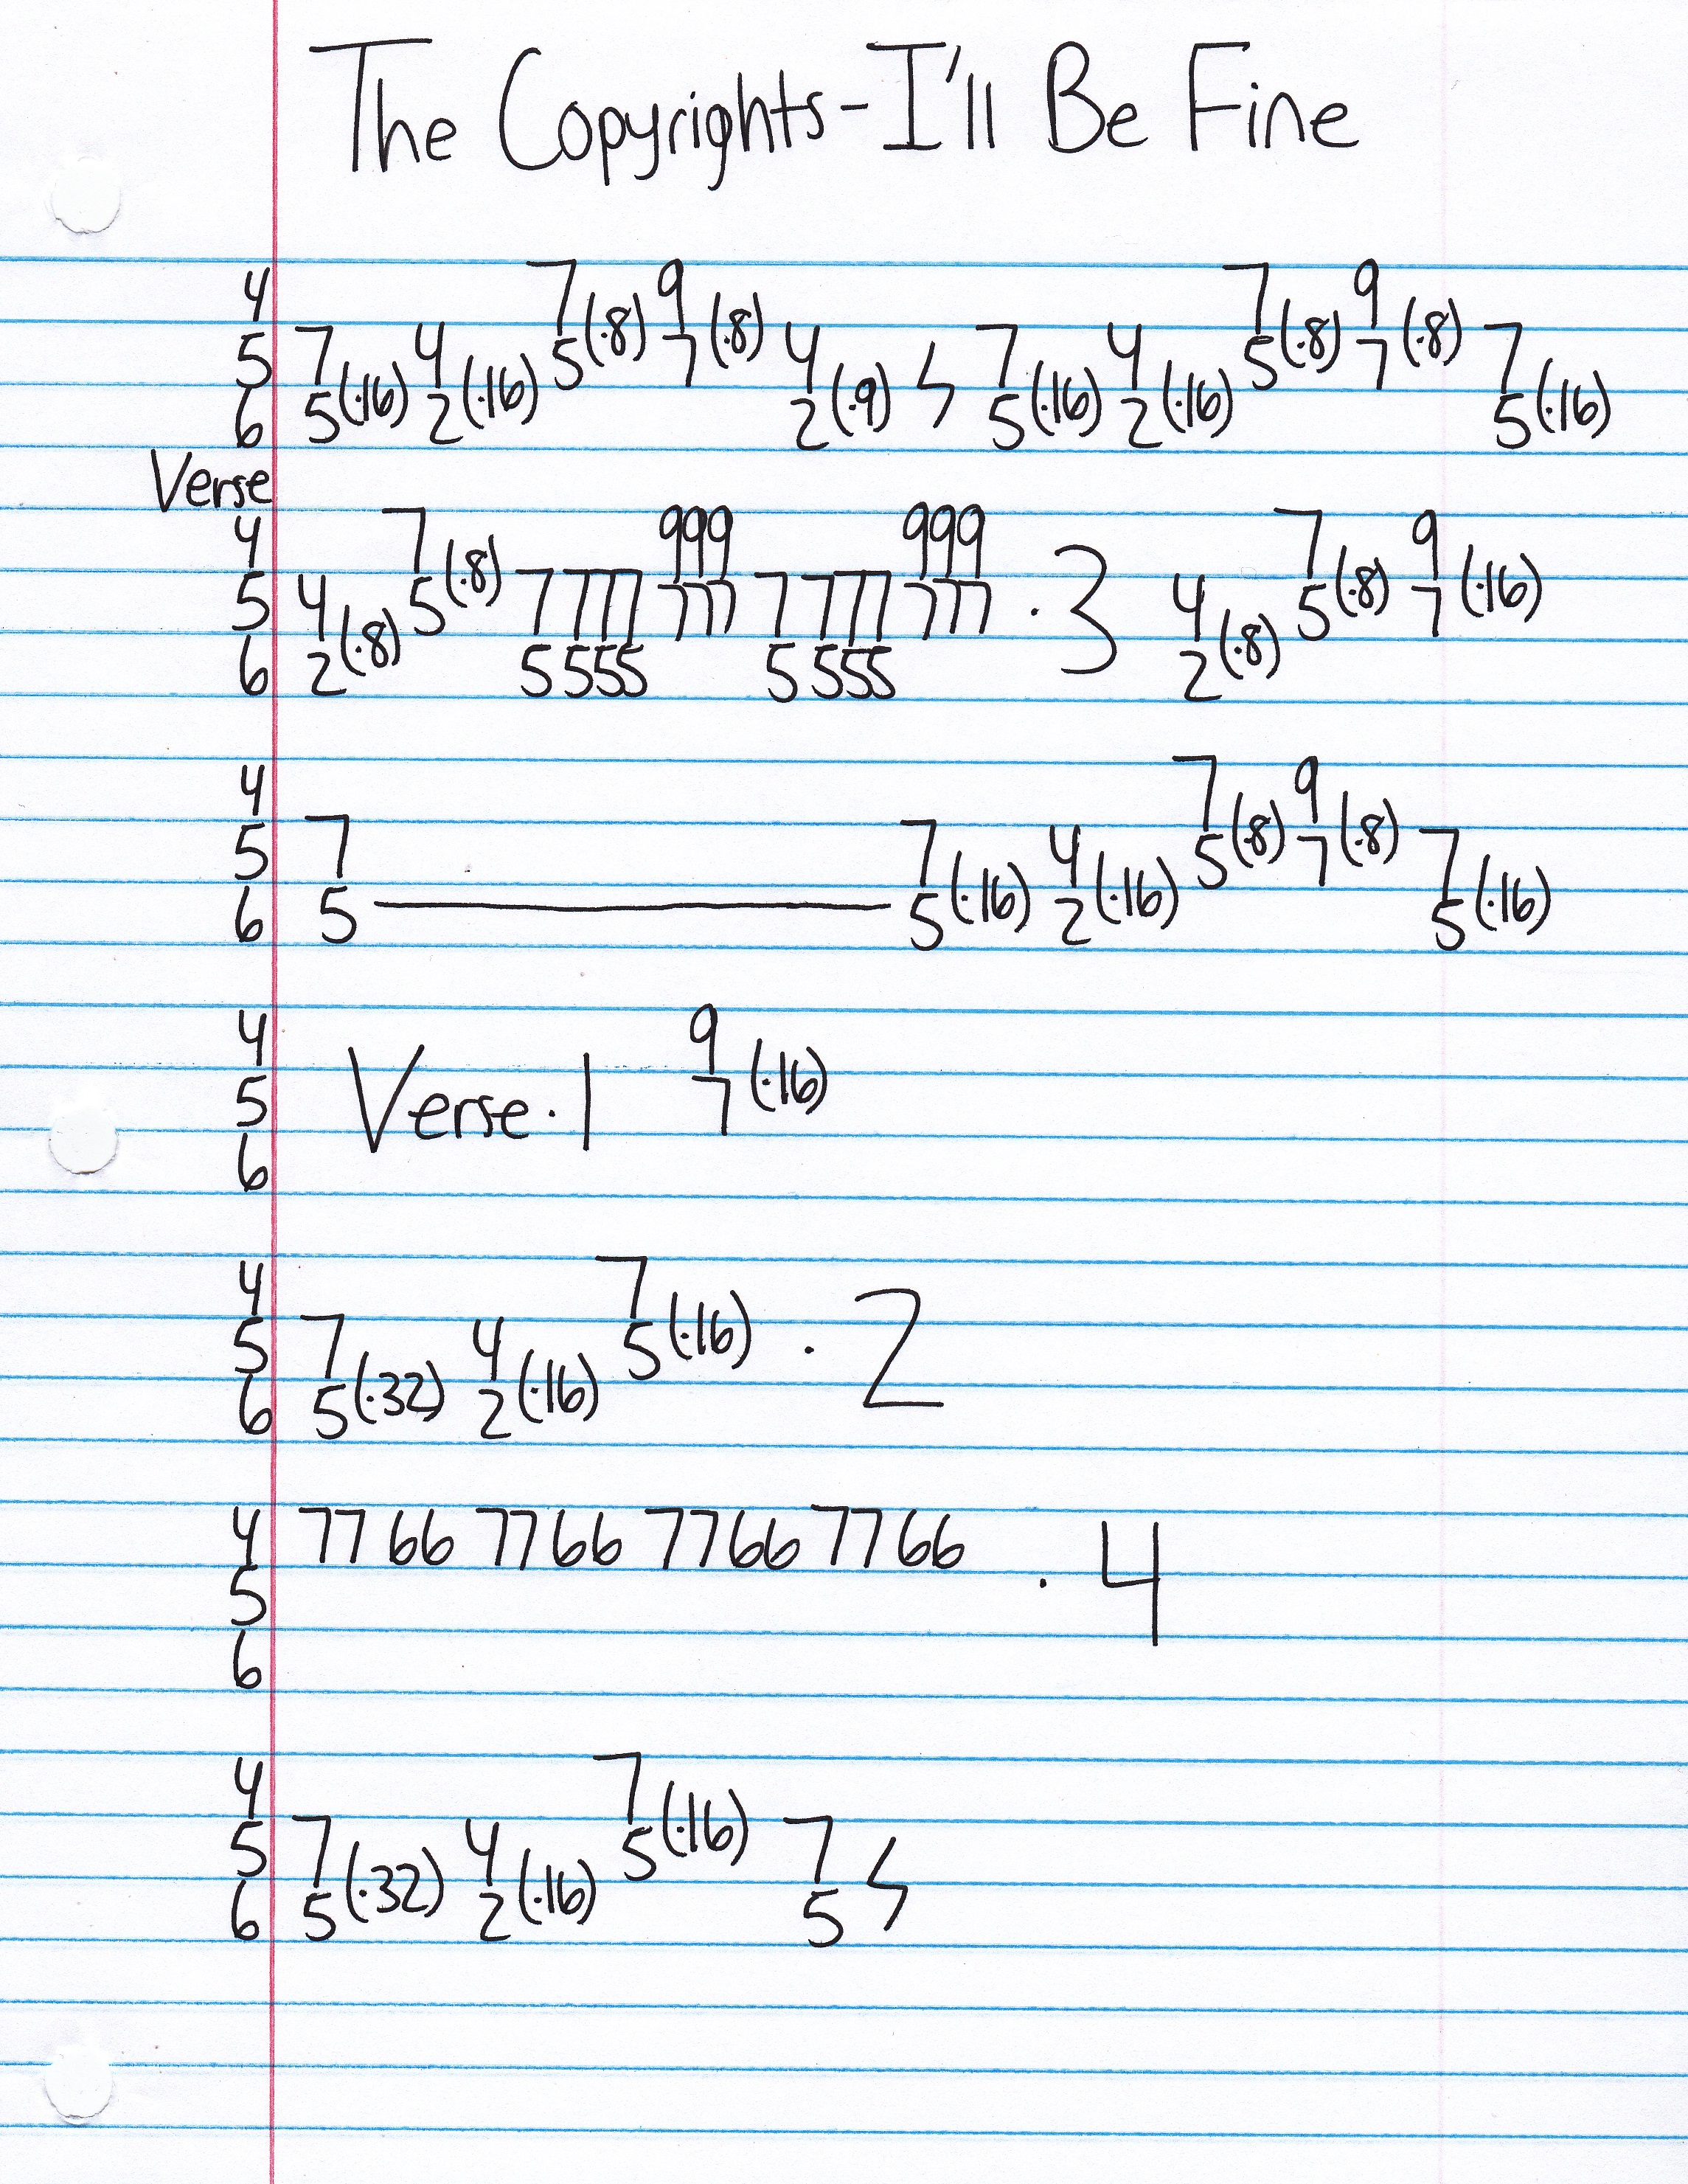 The Copyrights - I'll Be Fine
4 7(·8) 9 7(·8) 9
5 7 4 5 7(·8) 4 7 4 5(·8) 7(·8) 7
6 5(·16) 2(·16) 2(·9) 5(·16) 2(·16) 5(·16)
Verse
4 7 999 999 7 9
5 4 5(·8) 7777 777 7777 777 · 3 4 5(·8) 7(·16)
6 2(·8) 5555 5555 2(·8)
4 7 9
5 7 7 4 5(·8) 7(·8) 7
6 5 5(·16) 2(·16) 5(·16)
4 9
5 Verse · 1 7(·16)
6
4 7
5 7 4 5(·16) · 2
6 5(·32) 2(·16)
4 77 66 77 66 77 66 77 66
5 · 4
6
4 7
5 7 4 5(·16) 7
6 5(·32) 2(·16) 5